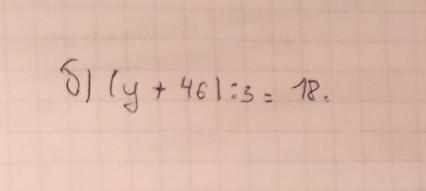 б) (y + 46) : 3 = 18.